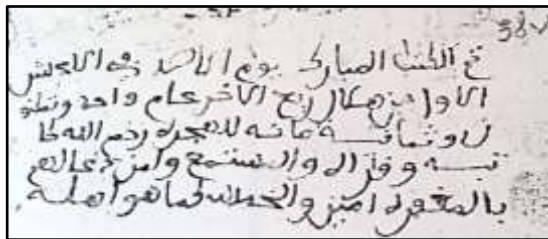 تم الكتب المبارك يوم الأحد في العشر
الاول من هلال ربيع الاخر عام واحد وثلثو
ن وثمانية مائة للهجرة رحم الله كا
تبه وقراه والمستمع وامن دعا لهم
بالمغفرة امين والحمد لله كما هو اهله